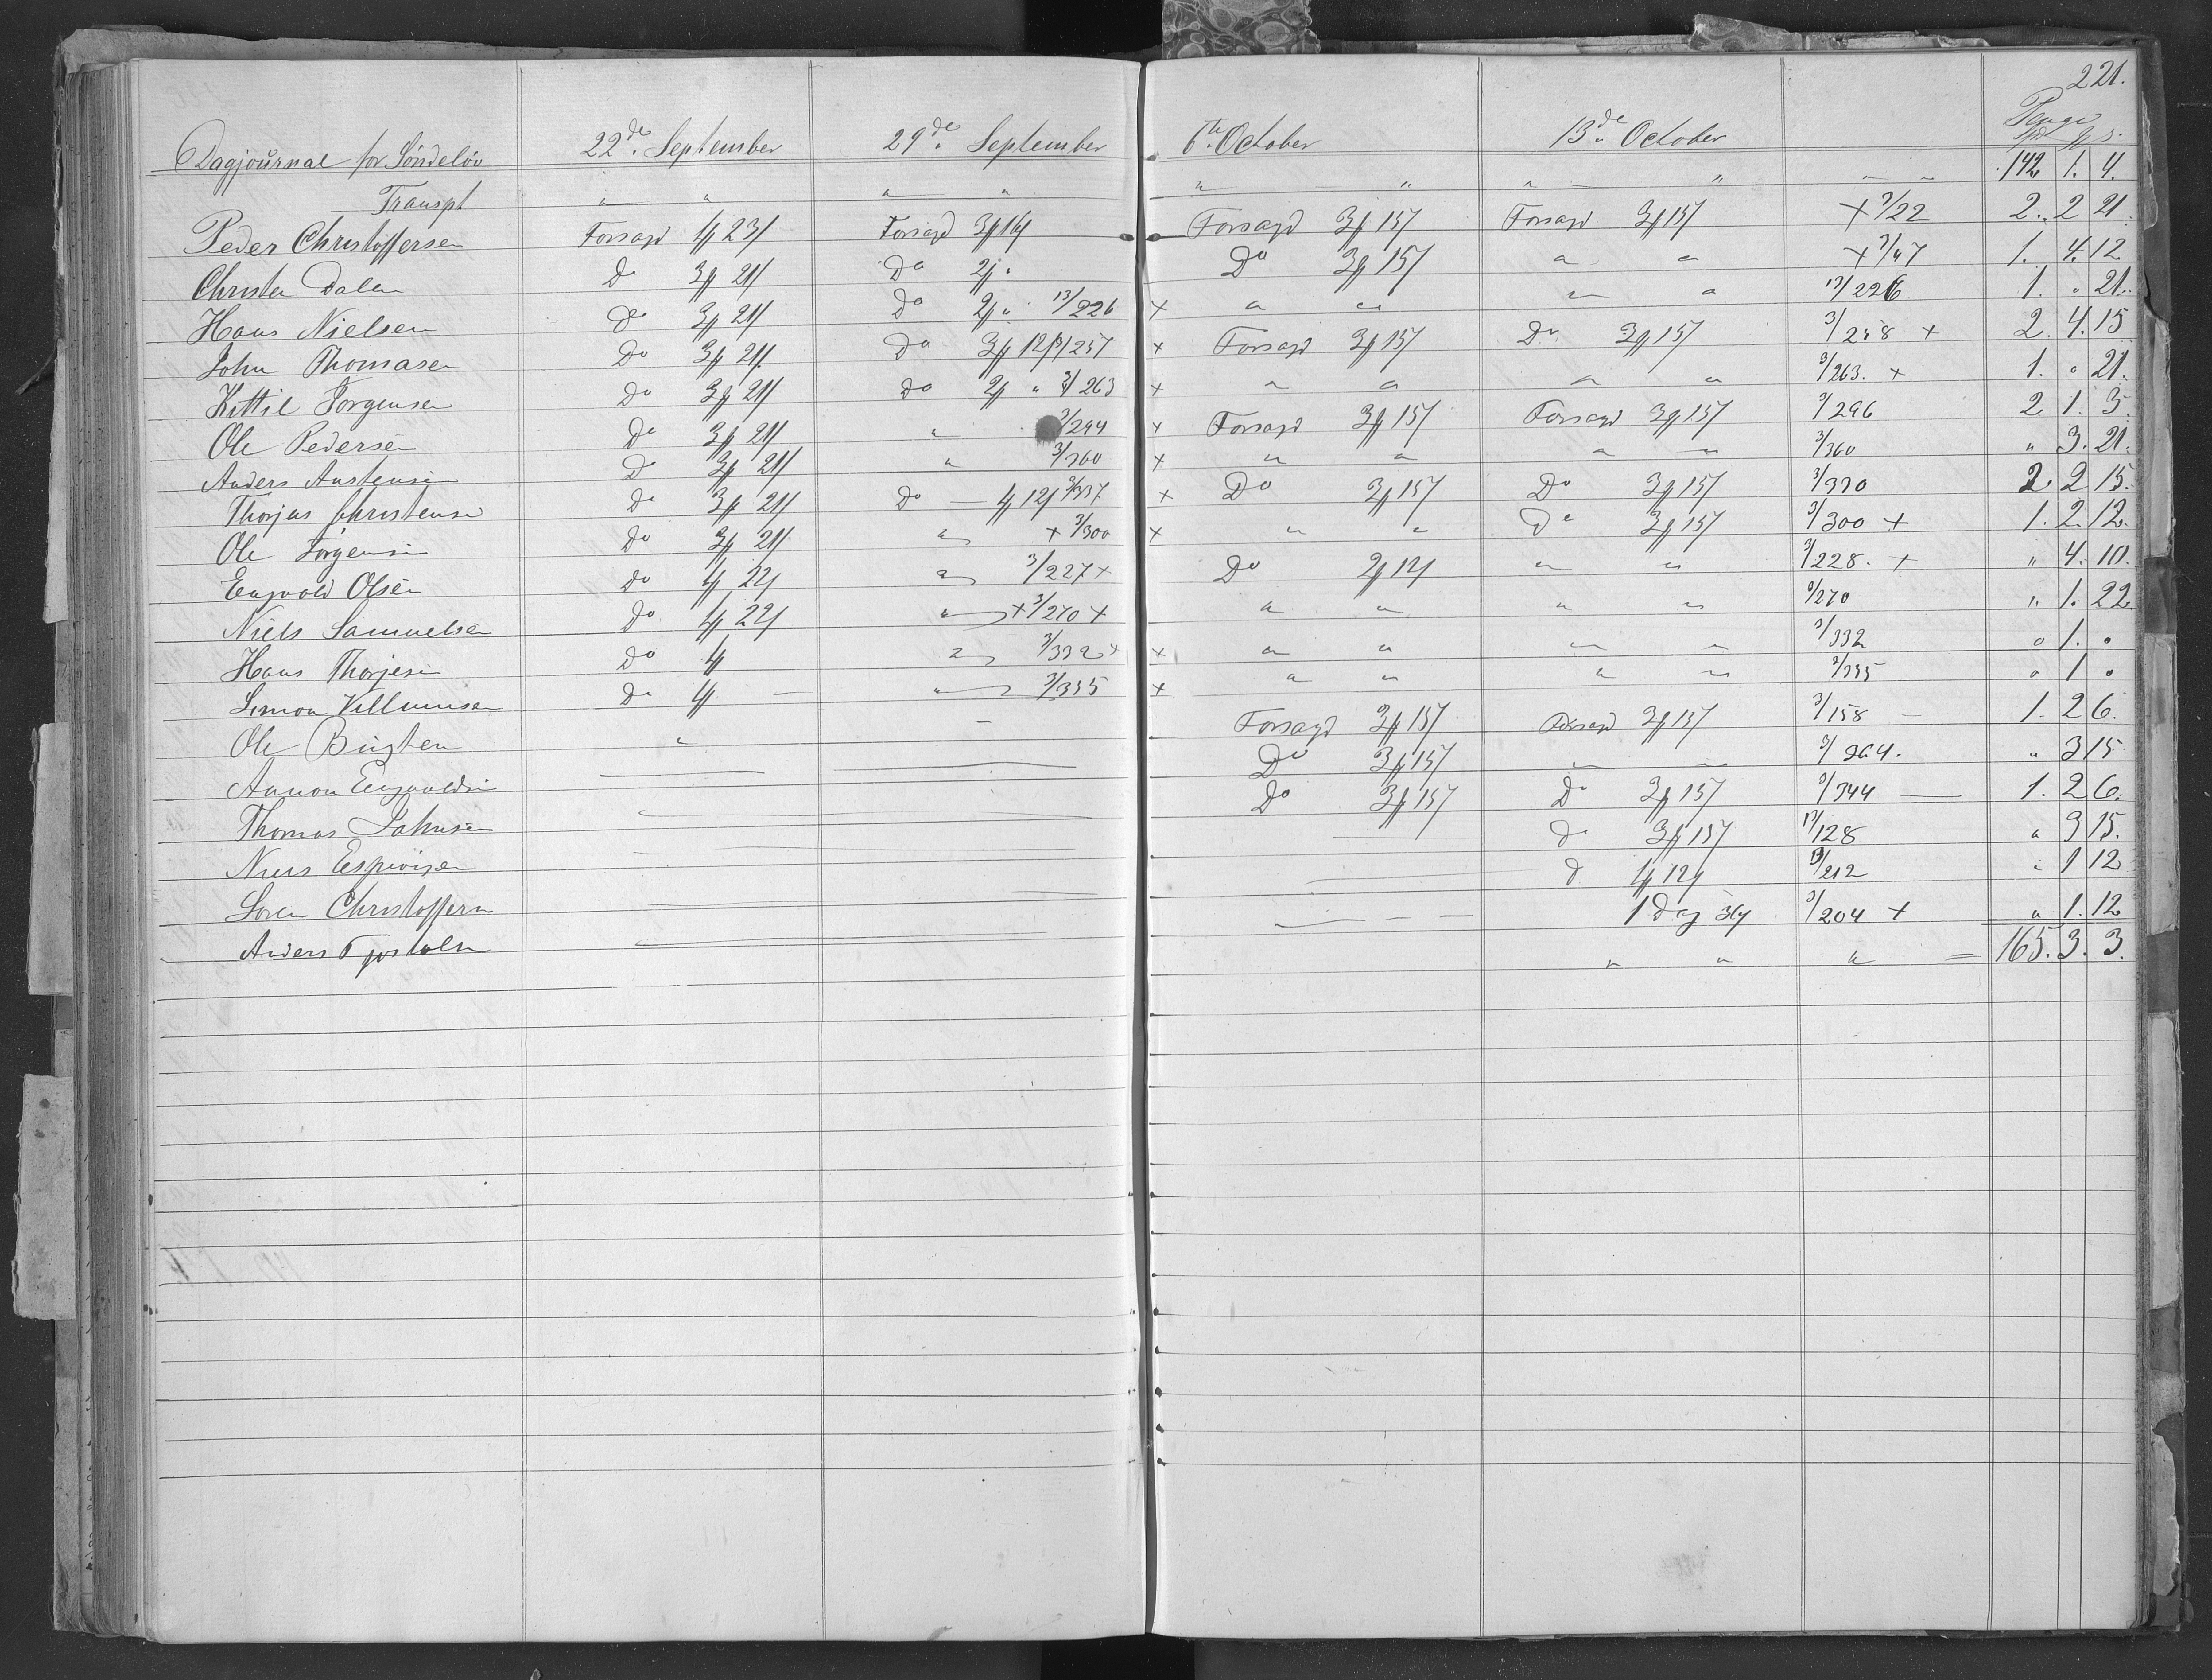 221.
Dagjournal for Søndeløv 22de September 29de September 6te October 13de October Penge
Transpt " " " " " " " " " " 142. 1. 4.
Peder Christoffersen Forsagd 4 23 Forsagd 3 16 Forsagd 3 15 Forsagd 3 15 + 3/22 2. 2 21.
Christen Dalen Do 3 21 Do 2 " Do 3 15 " " + 3/47 1. 4. 12
Hans Nielsen Do 3 21 Do 2 " 13/226 + " " " " 13/226 1. " 21.
John Thomasen Do 3 21 Do 3 12 3/257 + Forsagd 3 15 Do 3 15 3/258 + 2. 4. 15
Kittil Jørgensen Do 3 21 Do 2 " 3/263 + " " " " 3/263. + 1. " 21.
Ole Pedersen Do 3 21 " 3/294 + Forsagd 3 15 Forsagd 3 15 3/296 2 1. 3.
Anders Austensen Do 3 21 " 3/360 + " " " " 3/360 " 3. 21.
Thorjus Christensen Do 3 21 Do 4 12 3/337 + Do 3 15 Do 3 15 3/330 2. 2 15.
Ole Jørgensen Do 3 21 " + 3/300 + " " Do 3 15 3/300 + 1. 2. 12.
Engvold Olsen Do 4 22 " 3/227 + Do 2 12 " " 3/228. + " 4. 10.
Niels Samuelsen Do 4 22 " + 3/270 + " " " " 3/270 " 1. 22
Hans Thorjesen Do 4 " 3/332 + + " " " " 3/332 " 1. "
Simon Villumsen Do 4 — " 3/335 + " " " " 3/335 " 1 "
Ole " — Forsagd 3 15 Forsagd 3 15 3/158 — 1. 2 6.
Aanon Engvoldsen Do 3 15 " 3/264. " 3 15
Thomas Johnsen Do 3 15 Do 3 15 3/344 — 1. 2 6.
Do 3 15 13/128 " 3 15.
Søren Christoffersen Do 4 12 13/212 " 1 12
Anders Tjostolsen 1 Dag 36 3/204 + " 1. 12
" " " = 165. 3. 3.